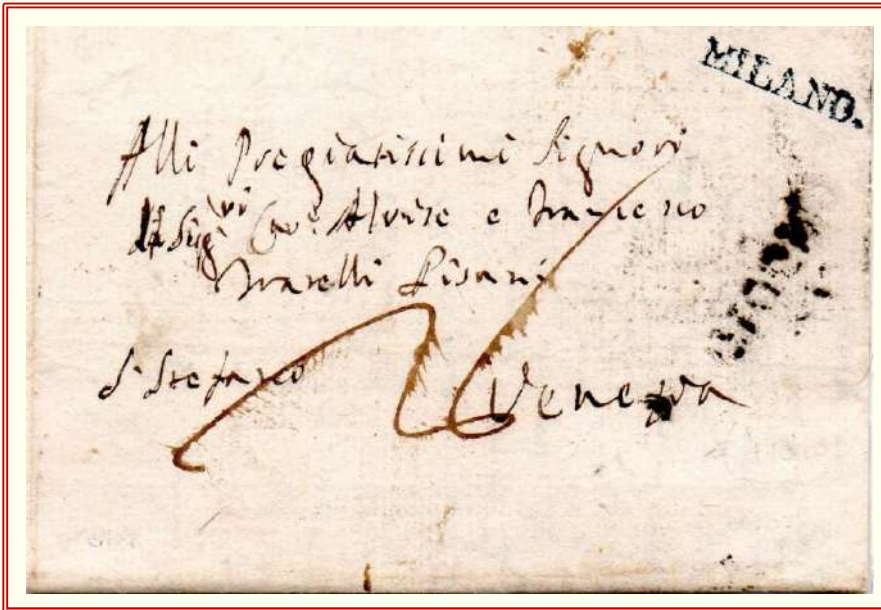 MILANO.
Alli Pregiatissimi Signori
Sigri Cavi Alvise e Francesco
Fratelli Pisani
S. Stefano
Venezia